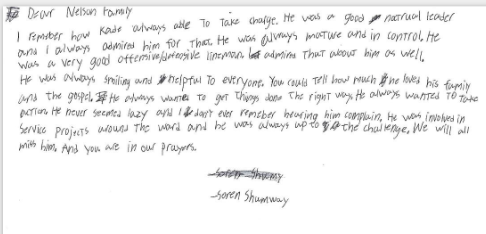 Dear Nelson Family
I remember how Kade always able To Take charge. He was a good natrual leader
and I always admired him for That. He was always mature and in control. He
was a very good offensive/defensive lineman. I admired That about him as well.
He was always smiling and helpful To everyone. You could Tell how much he loved his family
and the gospel. He always wanted To get Things done The right way. He always wanted To Take
action. He never seemed lazy and I don't ever remeber hearing him complain. He was involved in
Service projects around The ward and he was always up to the challenge. We will all
miss him. And you are in our prayers.
Soren Shumway